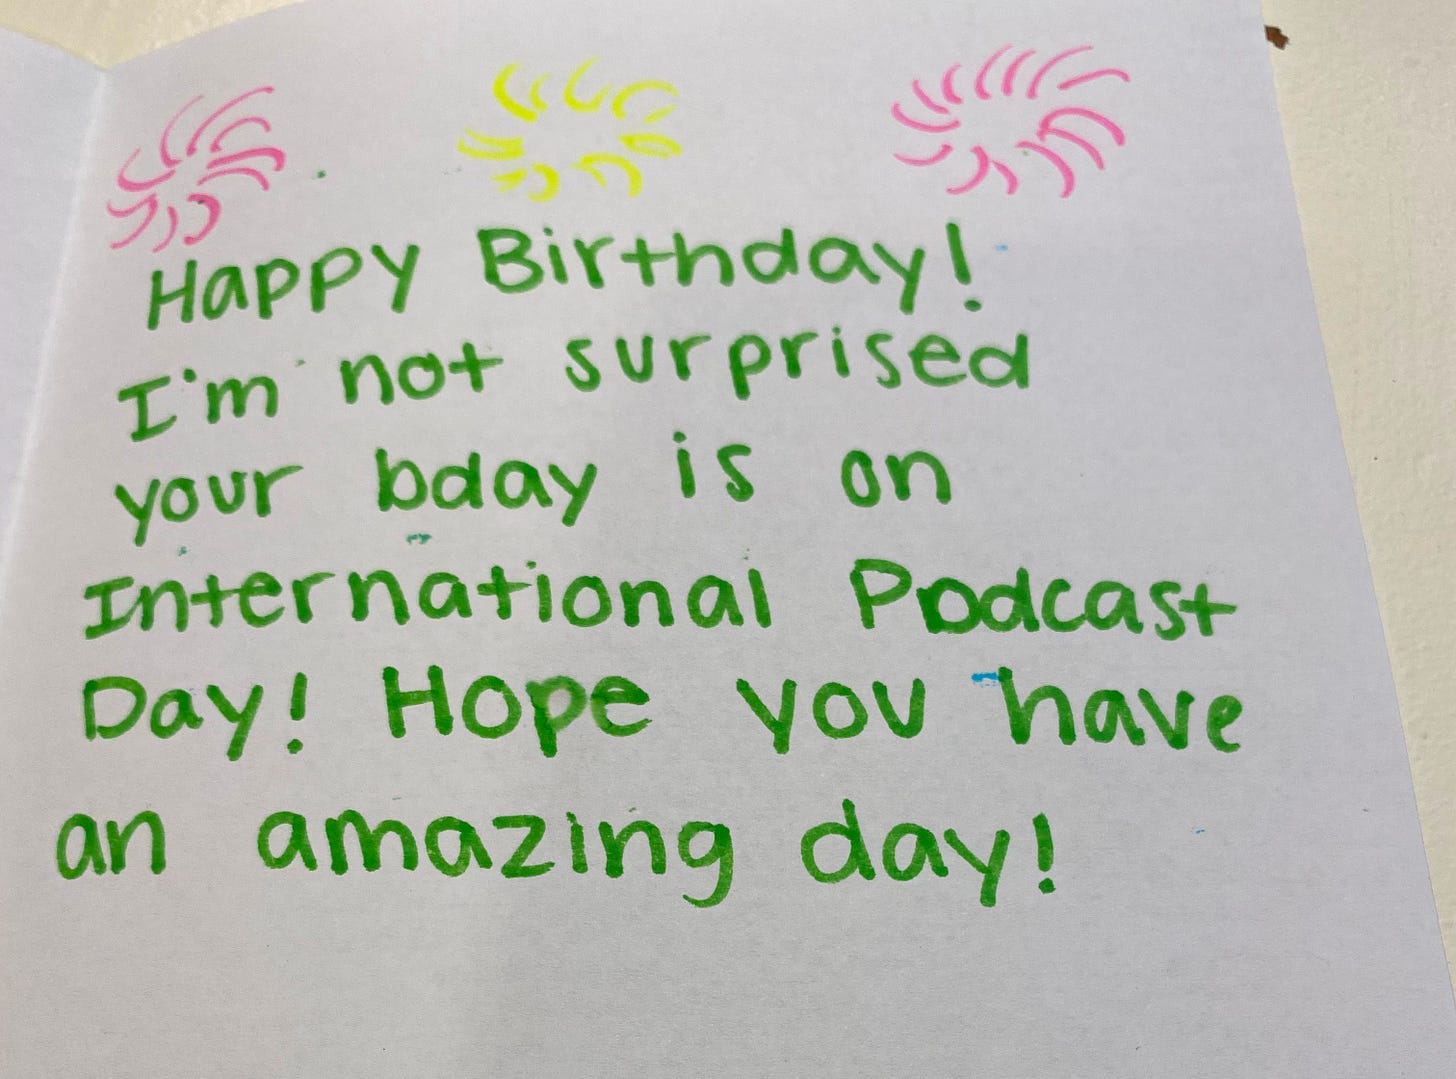 Happy Birthday!
I'm not surprised
your bday is on
International Podcast
Day! Hope you have
an amazing day!